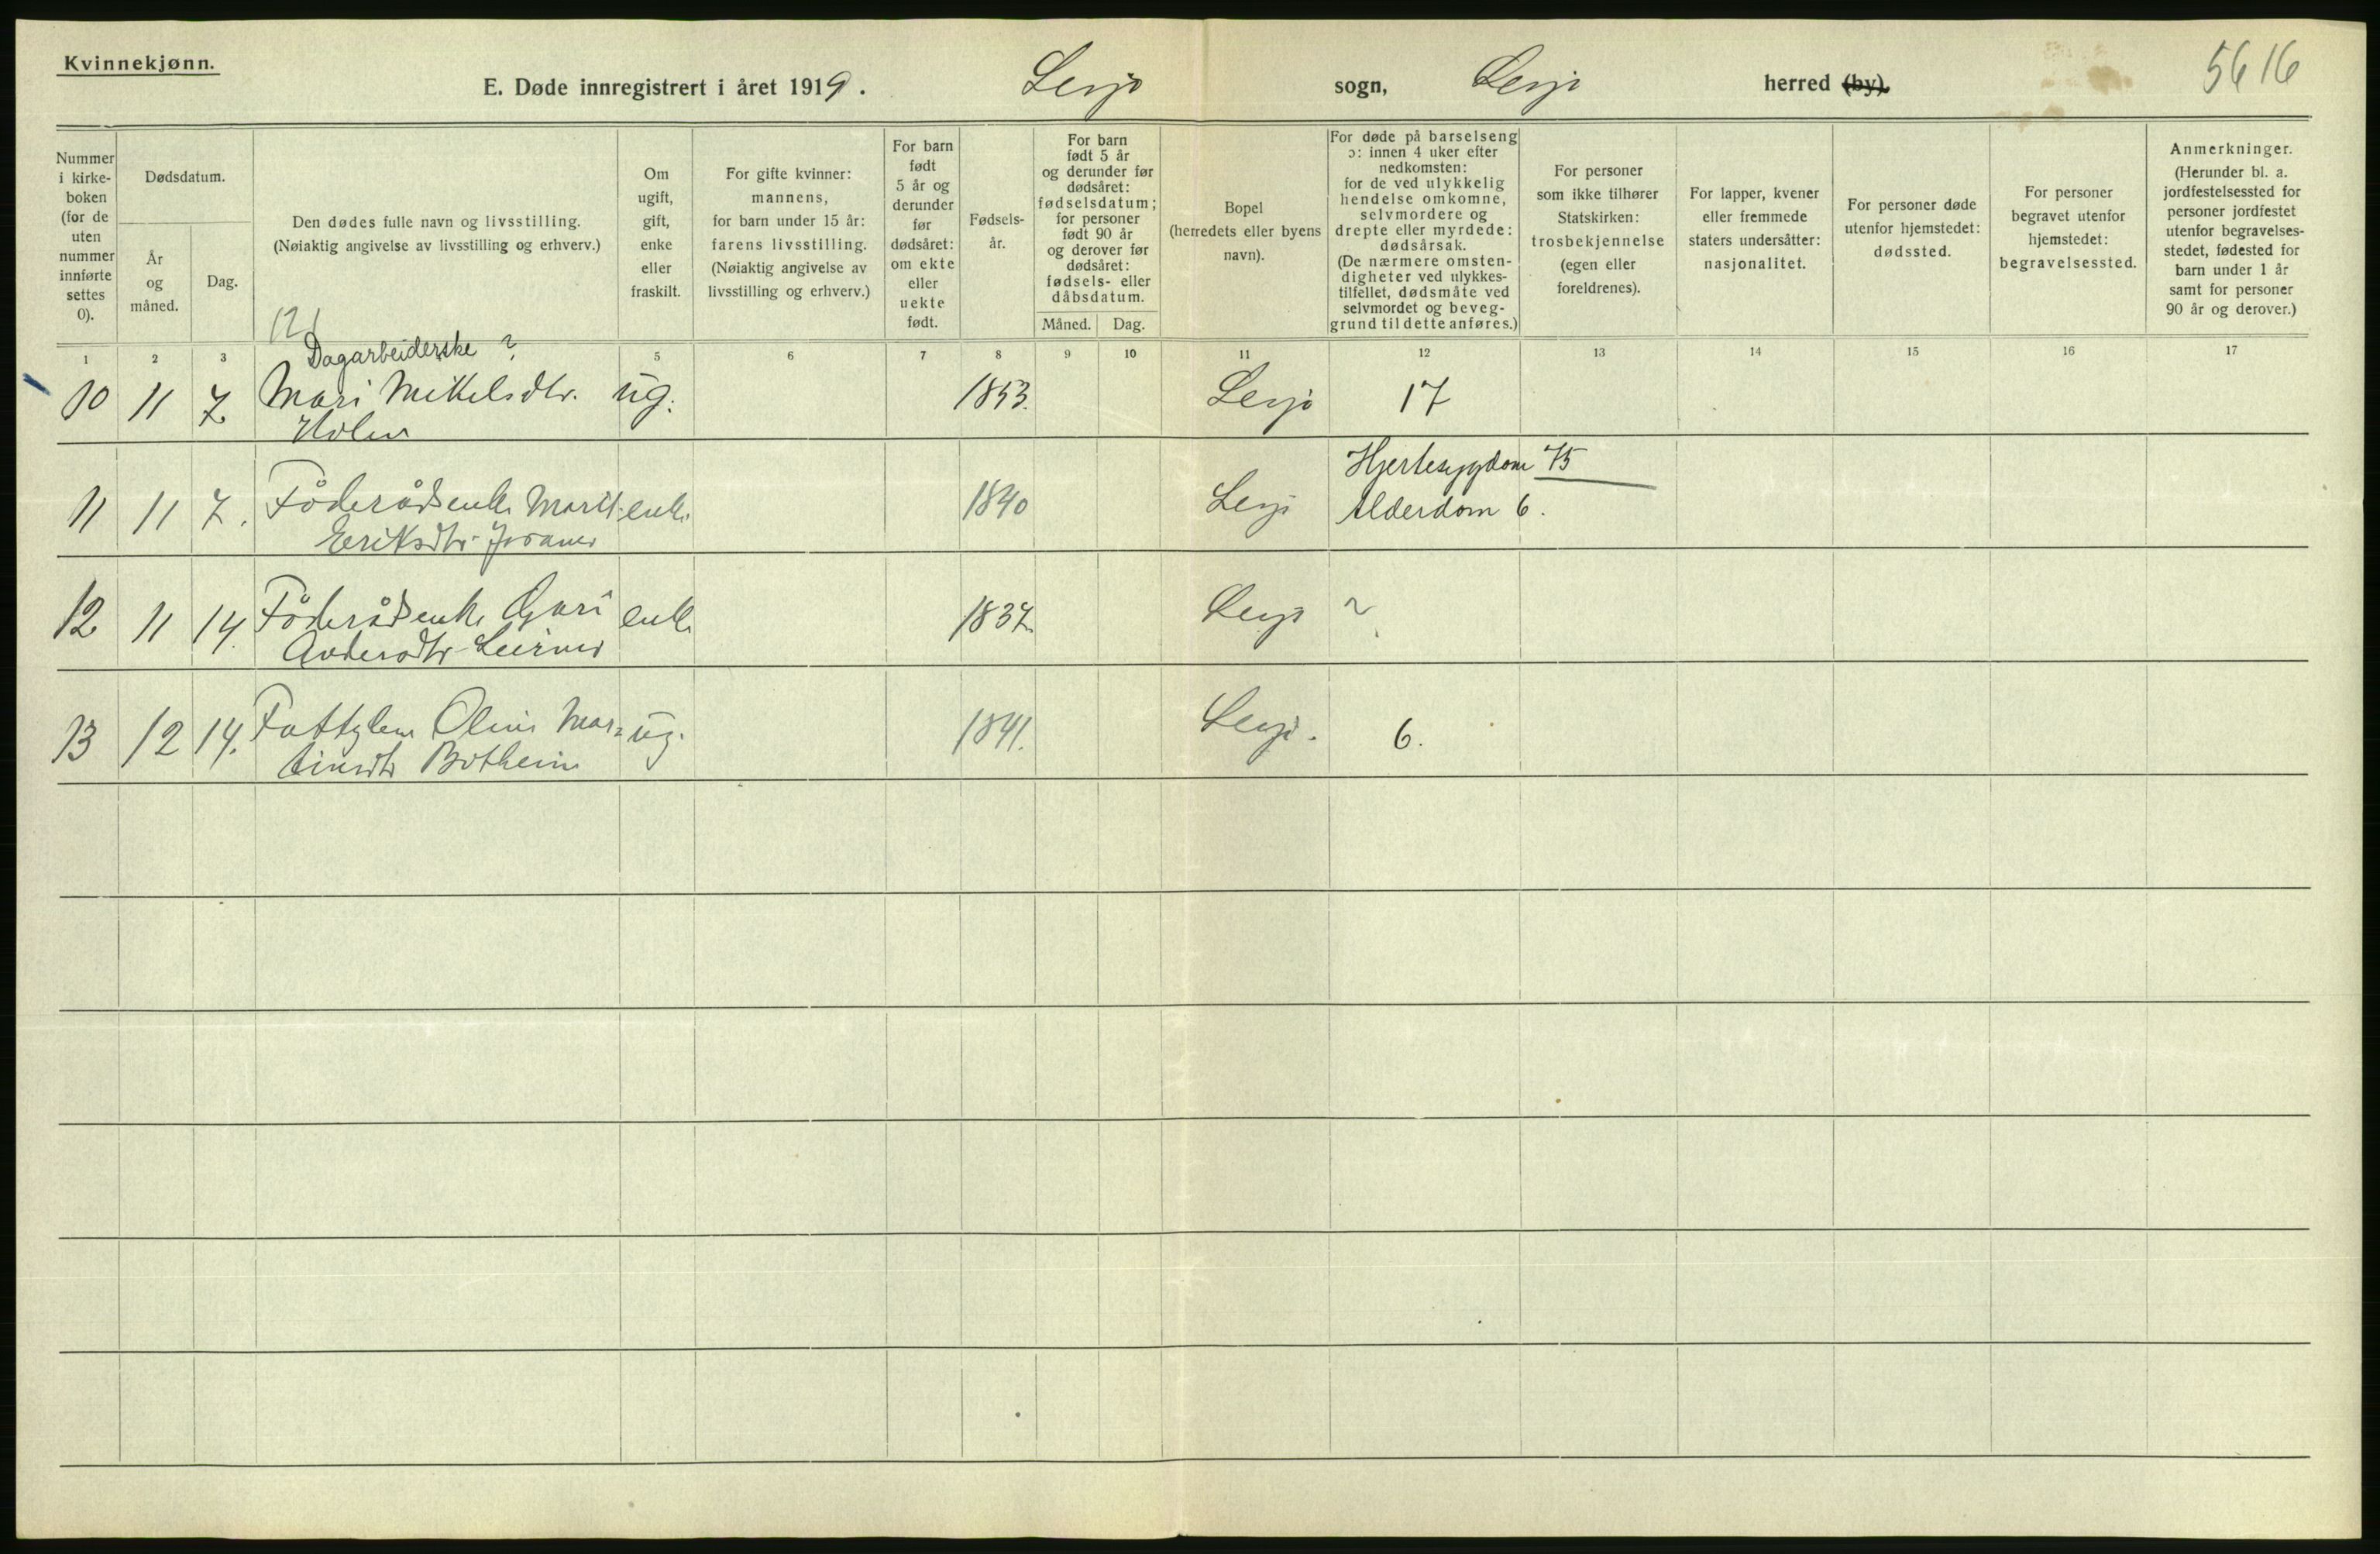 Kvinnekjønn.
E. Døde innregistrert i året 1919. Lesja sogn, Lesja herred (by).
5616
Nummer i kirke- boken (for de uten nummer innførte settes 0).
Dødsdatum.
År og måned.
Dag.
Den dødes fulle navn og livsstilling.
(Nøiaktig angivelse av livsstilling og erhverv.)
Om ugift, gift, enke eller fraskilt.
For gifte kvinner: mannens, for barn under 15 år: farens livsstilling. (Nøiaktig angivelse av livsstilling og erhverv.)
For barn født 5 år og derunder før dødsåret: om ekte eller uekte født.
Fødsels- år.
For barn født 5 år og derunder før dødsåret: fødselsdatum; for personer født 90 år og derover før dødsåret: fødsels- eller dåbsdatum.
Måned. Dag.
Bopel (herredets eller byens navn).
For døde på barselseng ɔ: innen 4 uker efter nedkomsten: for de ved ulykkelig hendelse omkomne, selvmordere og drepte eller myrdede: dødsårsak. (De nærmere omsten- digheter ved ulykkes- tilfellet, dødsmåte ved selvmordet og beveg- grund til dette anføres.)
For personer som ikke tilhører Statskirken: trosbekjennelse (egen eller foreldrenes).
For lapper, kvener eller fremmede staters undersåtter: nasjonalitet.
For personer døde utenfor hjemstedet: dødssted.
For personer begravet utenfor hjemstedet: begravelsessted.
Anmerkninger. (Herunder bl. a. jordfestelsessted for personer jordfestet utenfor begravelses- stedet, fødested for barn under 1 år samt for personer 90 år og derover.)
1 2 3 5 6 7 8 9 10 11 12 13 14 15 16 17
Dagarbeiderske ?
10 11 7. Mari Mikkelsdtr. ug. 1853. Lesja 17
Holen
Hjertesygdom 75
11 11 7. Föderådsenke Marit enke 1840 Lesja Alderdom 6.
Eriksdtr.
12 11 14. Föderådsenke Guri enke 1837. Lesja ?
Andersdtr.
13 12 14. Fattiglem Oline Mar= ug. 1841. Lesja. 6.
tinsdtr Botheim